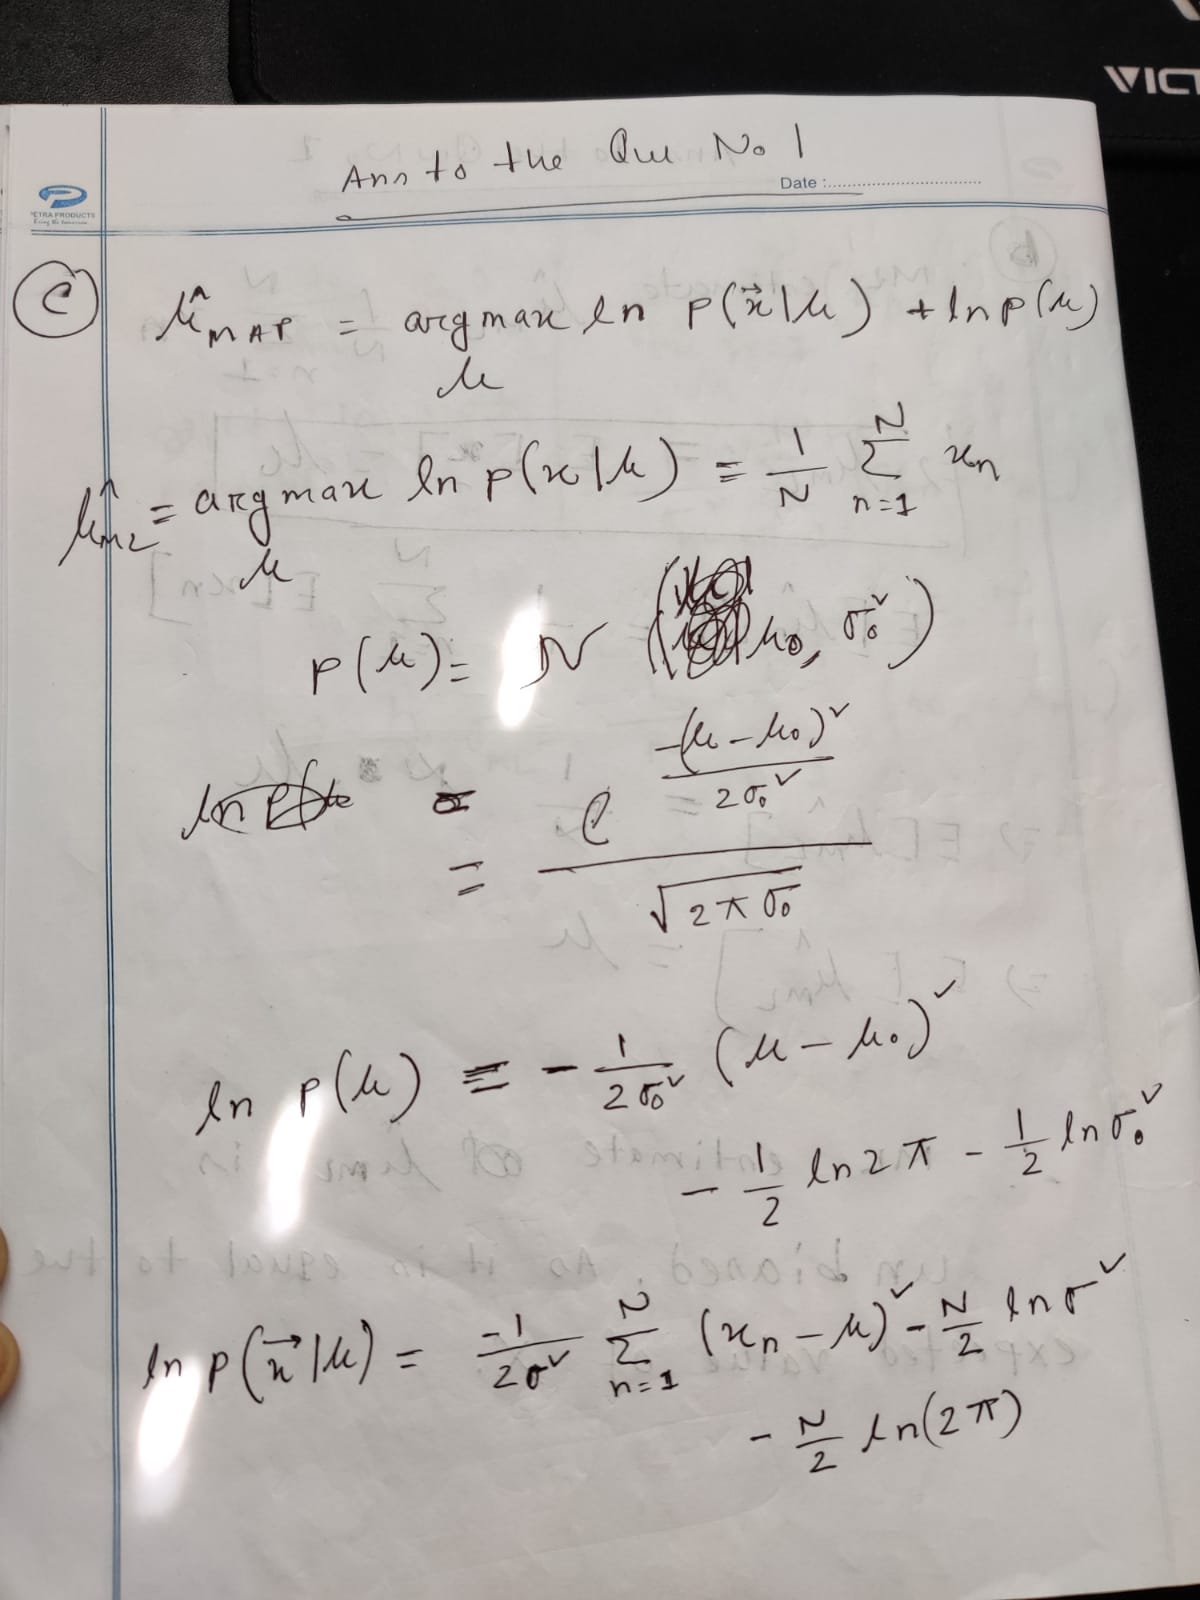 VICT
Ans to the Que No 1
Date :
PETRA PRODUCTS
c
μ̂_MAP = argmax ln p(x⃗|μ) + ln p(μ)
μ
μ̂_ML = argmax ln p(x|μ) = 1/N Σ_{n=1}^{N} x_n
μ
p(μ) = N (μ₀, σ₀²)
= e^{-(μ-μ₀)²/2σ₀²} / √(2π σ₀)
ln p(μ) = - 1/2σ₀² (μ - μ₀)²
- 1/2 ln 2π - 1/2 ln σ₀²
ln p(x⃗|μ) = -1/2σ² Σ_{n=1}^{N} (x_n - μ)² - N/2 ln σ²
- N/2 ln(2π)